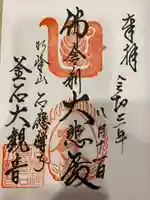 奉拝
令和二年
八月十一日
佛舎利大悲殿
明峰山石應禅寺
釜石大観音